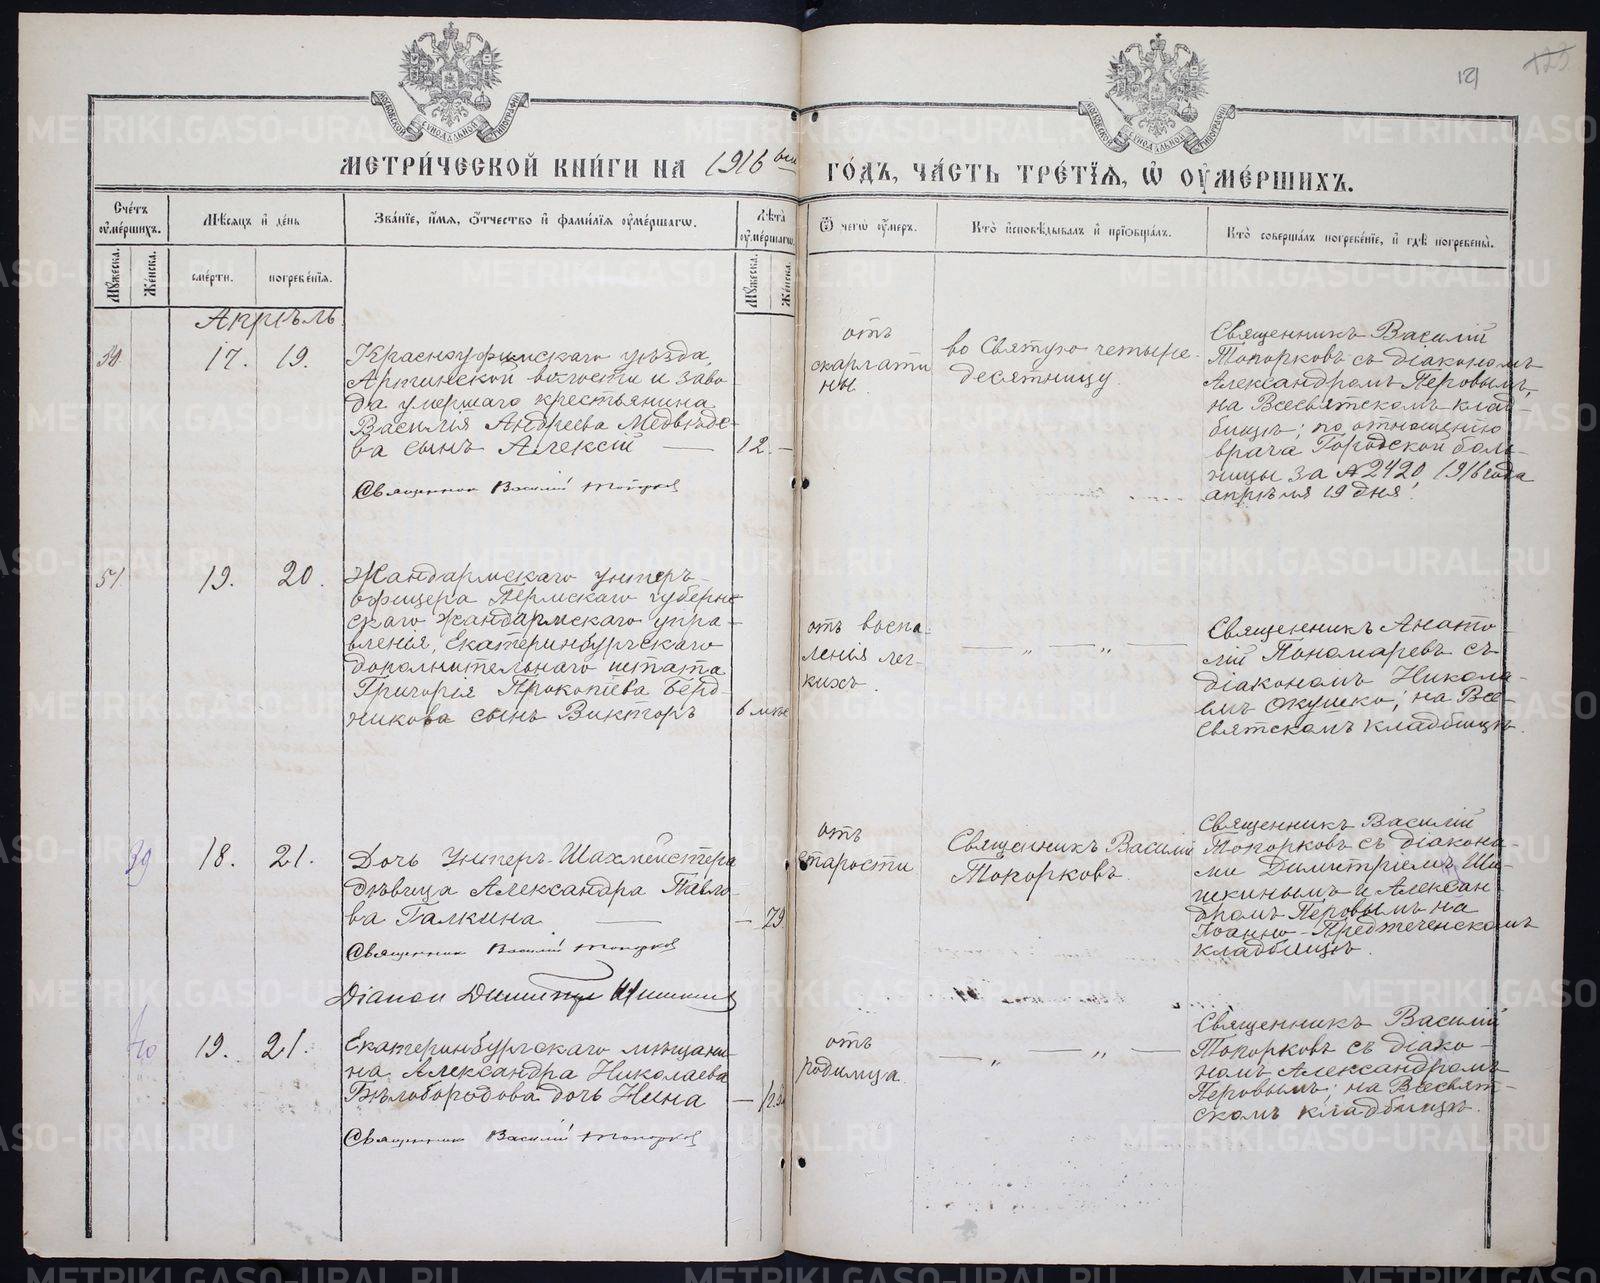 121
125
МОСКОВСКОЙ СѴНОДАЛЬНОЙ ТИПОГРАФІИ
МОСКОВСКОЙ СѴНОДАЛЬНОЙ ТИПОГРАФІИ
МЕТРИ́ЧЕСКОЙ КНИ́ГИ НА 1916 ый ГО́ДЪ, ЧА́СТЬ ТРЕ́ТЇѦ, Ѽ ОУМЕ́РШИХЪ.
Сче́тъ оуме́ршихъ.
Мѣ́сяцъ и҆ де́нь
Зва́нїе, и҆́мя, ѻ҆́тчество и҆ фами́лїя оуме́ршагѡ.
Лѣ́та оуме́ршагѡ.
Ѿ чегѡ̀ оу҆́меръ.
Кто̀ и҆сповѣ́дывалъ и҆ прїѡбща́лъ.
Кто̀ соверша́лъ погребе́нїе, и҆ гдѣ̀ погребены̀.
Мꙋ́жеска.
Же́нска.
сме́рти.
погребе́нїя.
Мꙋ́жеска.
Же́нска.
Апрѣль.
50.
17.
19.
Красноуфимскаго уѣзда,
Артинской волости и заво-
да умершаго крестьянина
Василія Андреева Медвѣде-
ва сынъ Алексій —
12. –
Священник Василій Топорков
отъ
скарлати
ны.
во Святую четыре-
десятницу.
Священникъ Василій
Топорковъ съ діакономъ
Александромъ Перовымъ,
на Всесвятскомъ клад-
бищѣ; по отношенію
врача Городской боль-
ницы за № 2420, 1916 года
апрѣля 19 дня.
51
19.
20.
Жандармскаго унтеръ-
офицера Пермскаго губерн-
скаго жандармскаго упра-
вленія, Екатеринбургскаго
дополнительнаго штата
Григорія Прокопіева Берд-
никова сынъ Викторъ
6 мѣс
отъ воспа-
ленія лег-
кихъ.
— „ — „ —
Священникъ Анато-
лій Пономаревъ съ
діакономъ Никола-
емъ Окушко; на Все-
святскомъ кладбищѣ.
39
18.
21.
Дочь унтеръ-Шахмейстера
дѣвица Александра Павло-
ва Галкина —
– 79
Священник Василій Топорков
Діакон Димитрій Шишкин
отъ
старости
Священникъ Василій
Топорковъ.
Священникъ Василій
Топорковъ съ діакона-
ми Димитріемъ Ши-
шкинымъ и Алексан
дромъ Перовымъ на
Іоанно-Предтеченскомъ
кладбищѣ.
40
19.
21.
Екатеринбургскаго мѣщани-
на Александра Николаева
Бѣлобородова дочь Нина
—
Священник Василій Топорков
отъ
родимца.
— „ — „ —
Священникъ Василій
Топорковъ съ діако-
номъ Александромъ
Перовымъ; на Всесвят-
скомъ кладбищѣ.
METRIKI.GASO-URAL.RU